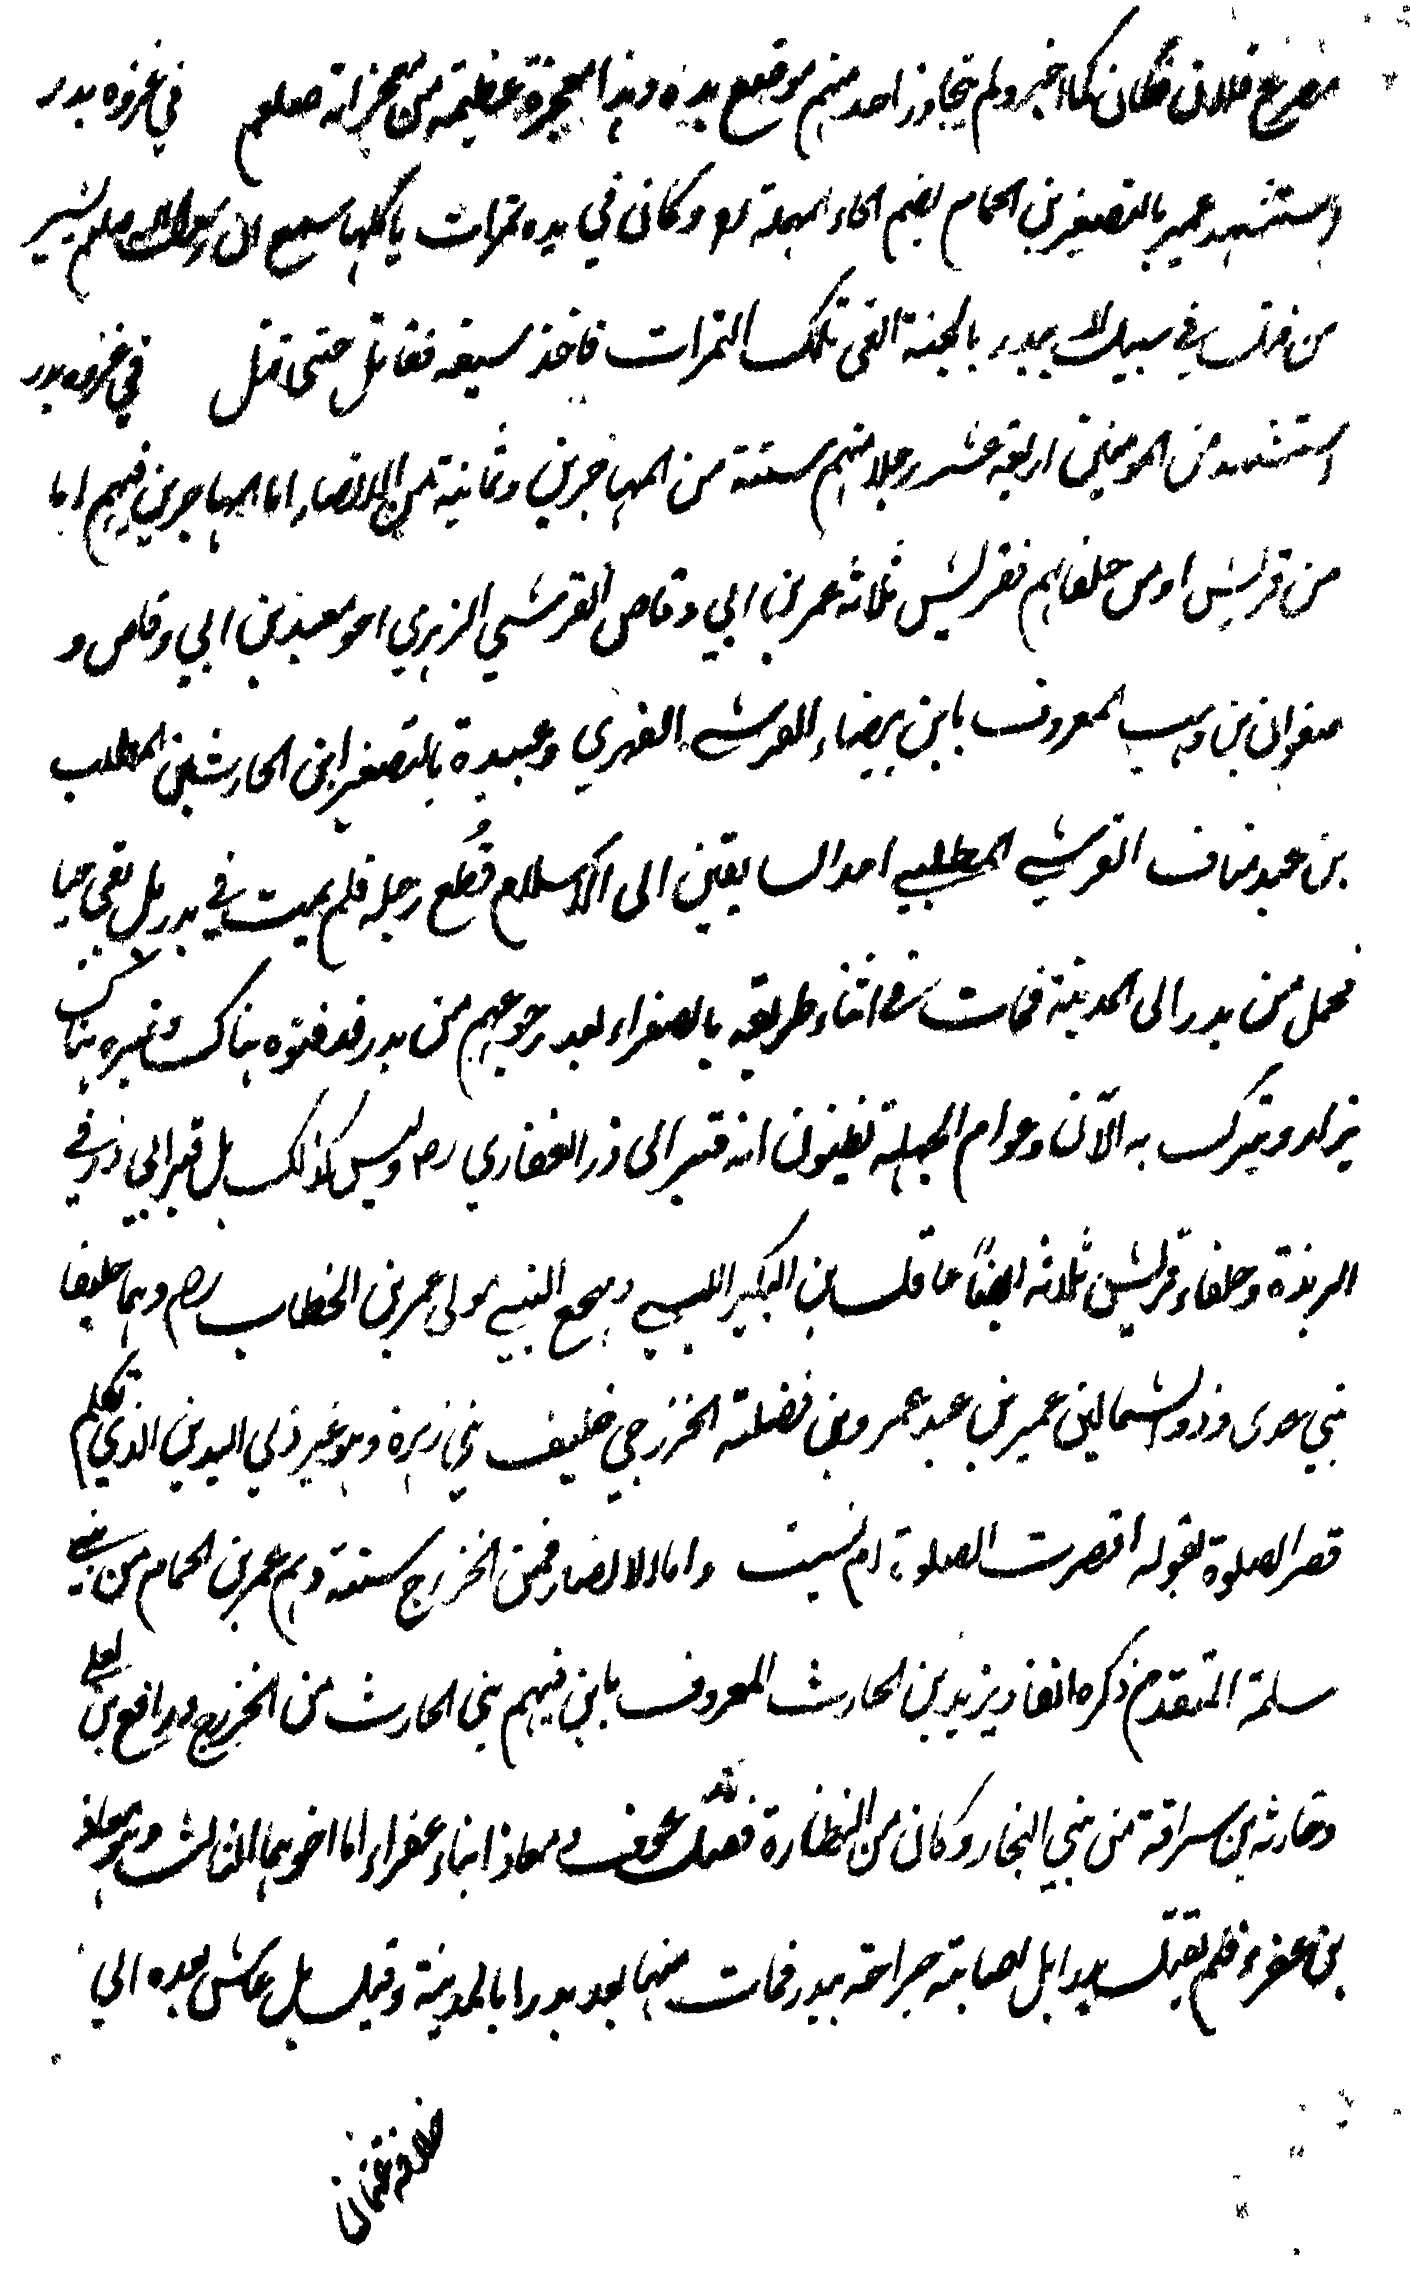 مصرع فلان فكان كما اخبر ولم يتجاوز احد منهم موضع يده وهذا معجزة عظيمة من معجزاته صلعم في غزوه بدر
استشهد عمير بالتصغير بن الحمام بضم الحاء المهملة رض وكان في يده تمرات ياكلها سمع ان رسول الله صلعم يبشر
من قتل في سبيل الله ببدر بالجنة القى تلك التمرات فاخذ سيفه فقاتل حتى قتل في غزوه بدر
استشهد من المومنين اربعة عشر رجلا منهم ستة من المهاجرين وثمانية من الانصار اما المهاجرين فهم اما
من قريش او من حلفايهم فقريش ثلاثه عمير بن ابي وقاص القرشي الزهري اخو سعد بن ابي وقاص و
صفوان بن وهب المعروف بابن بيضاء القرشي الفهري وعبيدة بالتصغير ابن الحارث بن المطلب
بن عبد مناف القرشي المطلبي احد السابقين الى الاسلام قُطع رجله فلم يمت في بدر بل بقي حيا
فحمل من بدر الى المدينة فمات في اثناء طريقه بالصفراء بعد رجوعهم من بدر فدفنوه هناك وقبره هناك
يزار ويتبرك به الآن وعوام الجهلة يظنون انه قبر ابى ذر الغفاري رض وليس كذلك بل قبر ابي ذر في
الربذة وحلفاء قريش ثلاثه ايضاً عاقل بن البكير الليثي ومهجع مولى عمر بن الخطاب رض وهما حليفا
بني عدى وذو الشمالين عمير بن عبد عمرو بن نضلة الخزرجي حليف بني زهرة وهو غير ذي اليدين الذي تكلم
قصر الصلوة بقوله اقصرت الصلوة ام نسيت واما الانصار فمن الخزرج ستة وهم عمير بن الحمام من بني
سلمة المتقدم ذكره انفا ويزيد بن الحارث المعروف بابن فسحم بني الحارث من الخزرج ورافع بن المعلى
وحارثه بن سراقة من بني النجار وكان من النظارة فقتل عوف ومعاذ ابناء عفراء اما اخوهما الثالث وهو معاذ
بن عفراء فلم يقتل ببدر بل اصابته جراحة ببدر فمات منها بعد بدر بالمدينة وقيل بل عاش بعده الى
خلافة عثمان